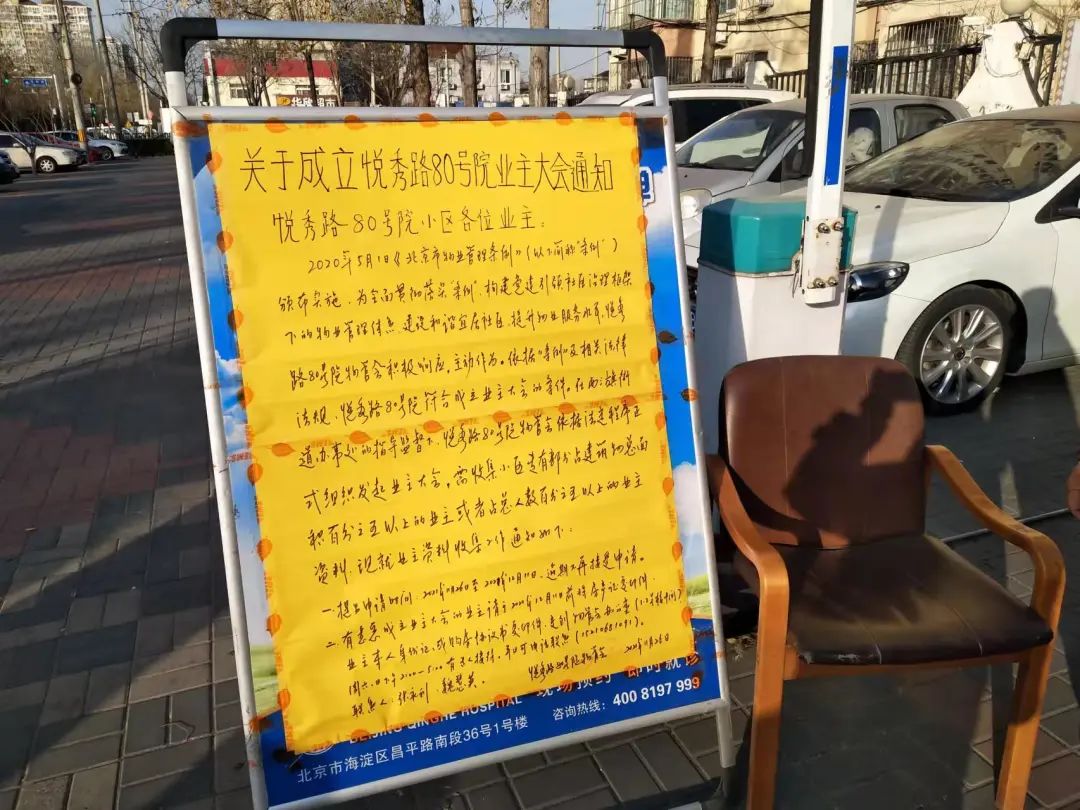 关于成立悦秀路80号院业主大会通知
悦秀路80号院小区各位业主：
2020年5月1日《北京市物业管理条例》（以下简称"条例"）
颁布实施，为全面贯彻落实"条例"，构建党建引领社区治理框架
下的物业管理体系，建设和谐宜居社区，提升物业服务水平，悦秀
路80号院物管会积极响应，主动作为。依据"条例"及相关法律
法规，悦秀路80号院符合成立业主大会的条件。在西三旗街
道办事处的指导监督下，悦秀路80号院物管会依据法定程序正
式组织发起业主大会，需收集小区专有部分占建筑物总面
积百分之五以上的业主或者占总人数百分之五以上的业主
资料，现就业主资料收集工作通知如下：
一.提出申请时间：2021年11月26日至2021年12月11日，逾期不再接受申请。
二.有意愿成立业主大会的业主请于2021年12月11日前将房产证复印件、
业主本人身份证、或购房协议书复印件，送到物管会办公室
周六、日下午2:00-5:00有专人接待，
联系人：张永利、魏慧英。
悦秀路80号院物管会 2021年11月26日
QINGHE HOSPITAL
现场预约 即时就诊
咨询热线：400 8197 999
北京市海淀区昌平路南段36号1号楼
华欣超市